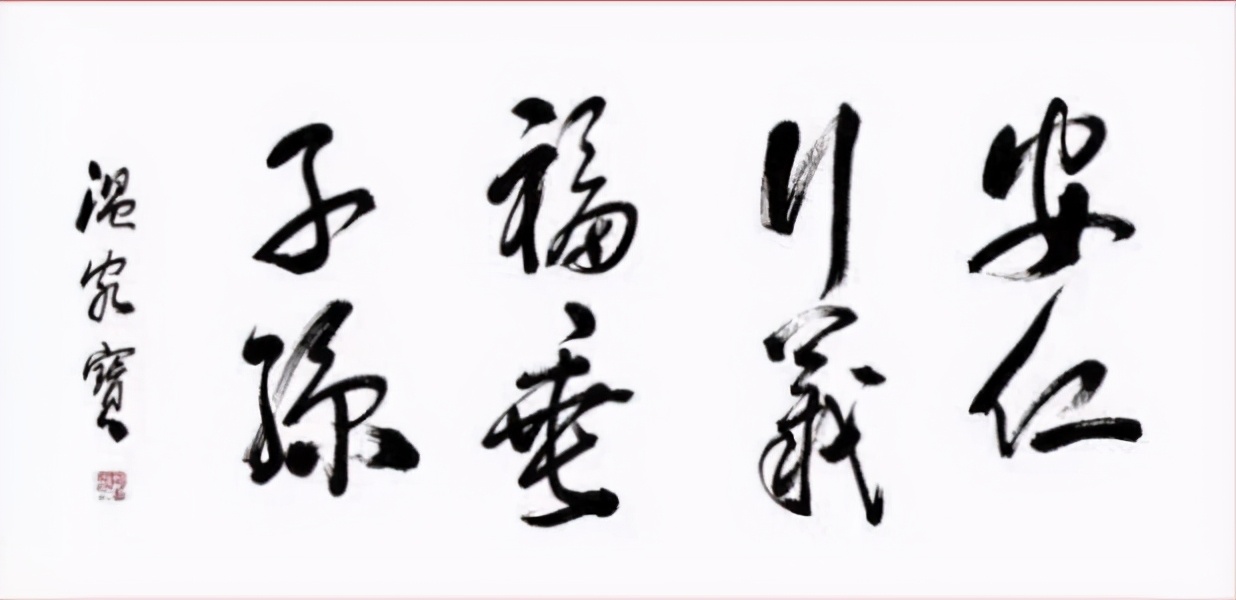 安仁
行義
福垂
子孫
溫家寶